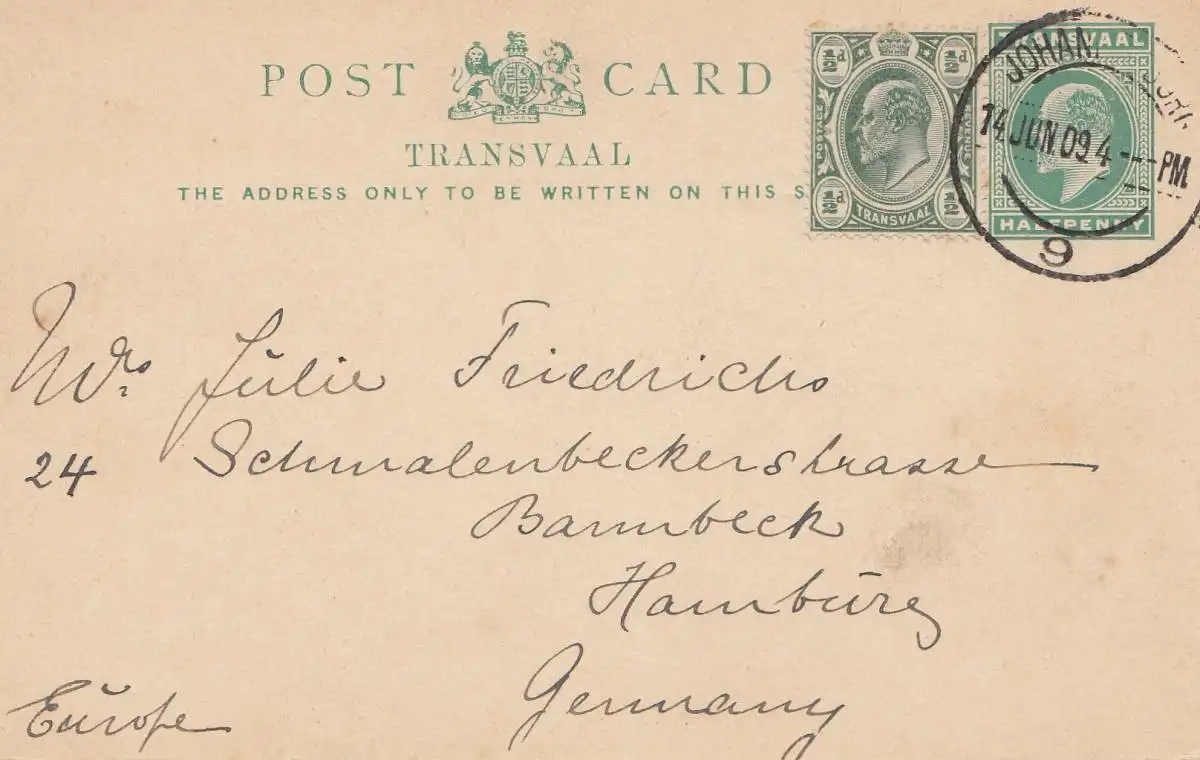 POST CARD
TRANSVAAL
THE ADDRESS ONLY TO BE WRITTEN ON THIS S
½d ½d
POSTAGE
½d ½d
TRANSVAAL
TRANSVAAL
HALFPENNY
JOHAN
14 JUN 09 4 PM
9
Mrs. Julie Friedrichs
24 Schmalenbeckerstrasse
Barmbeck
Hamburg
Germany
Europe